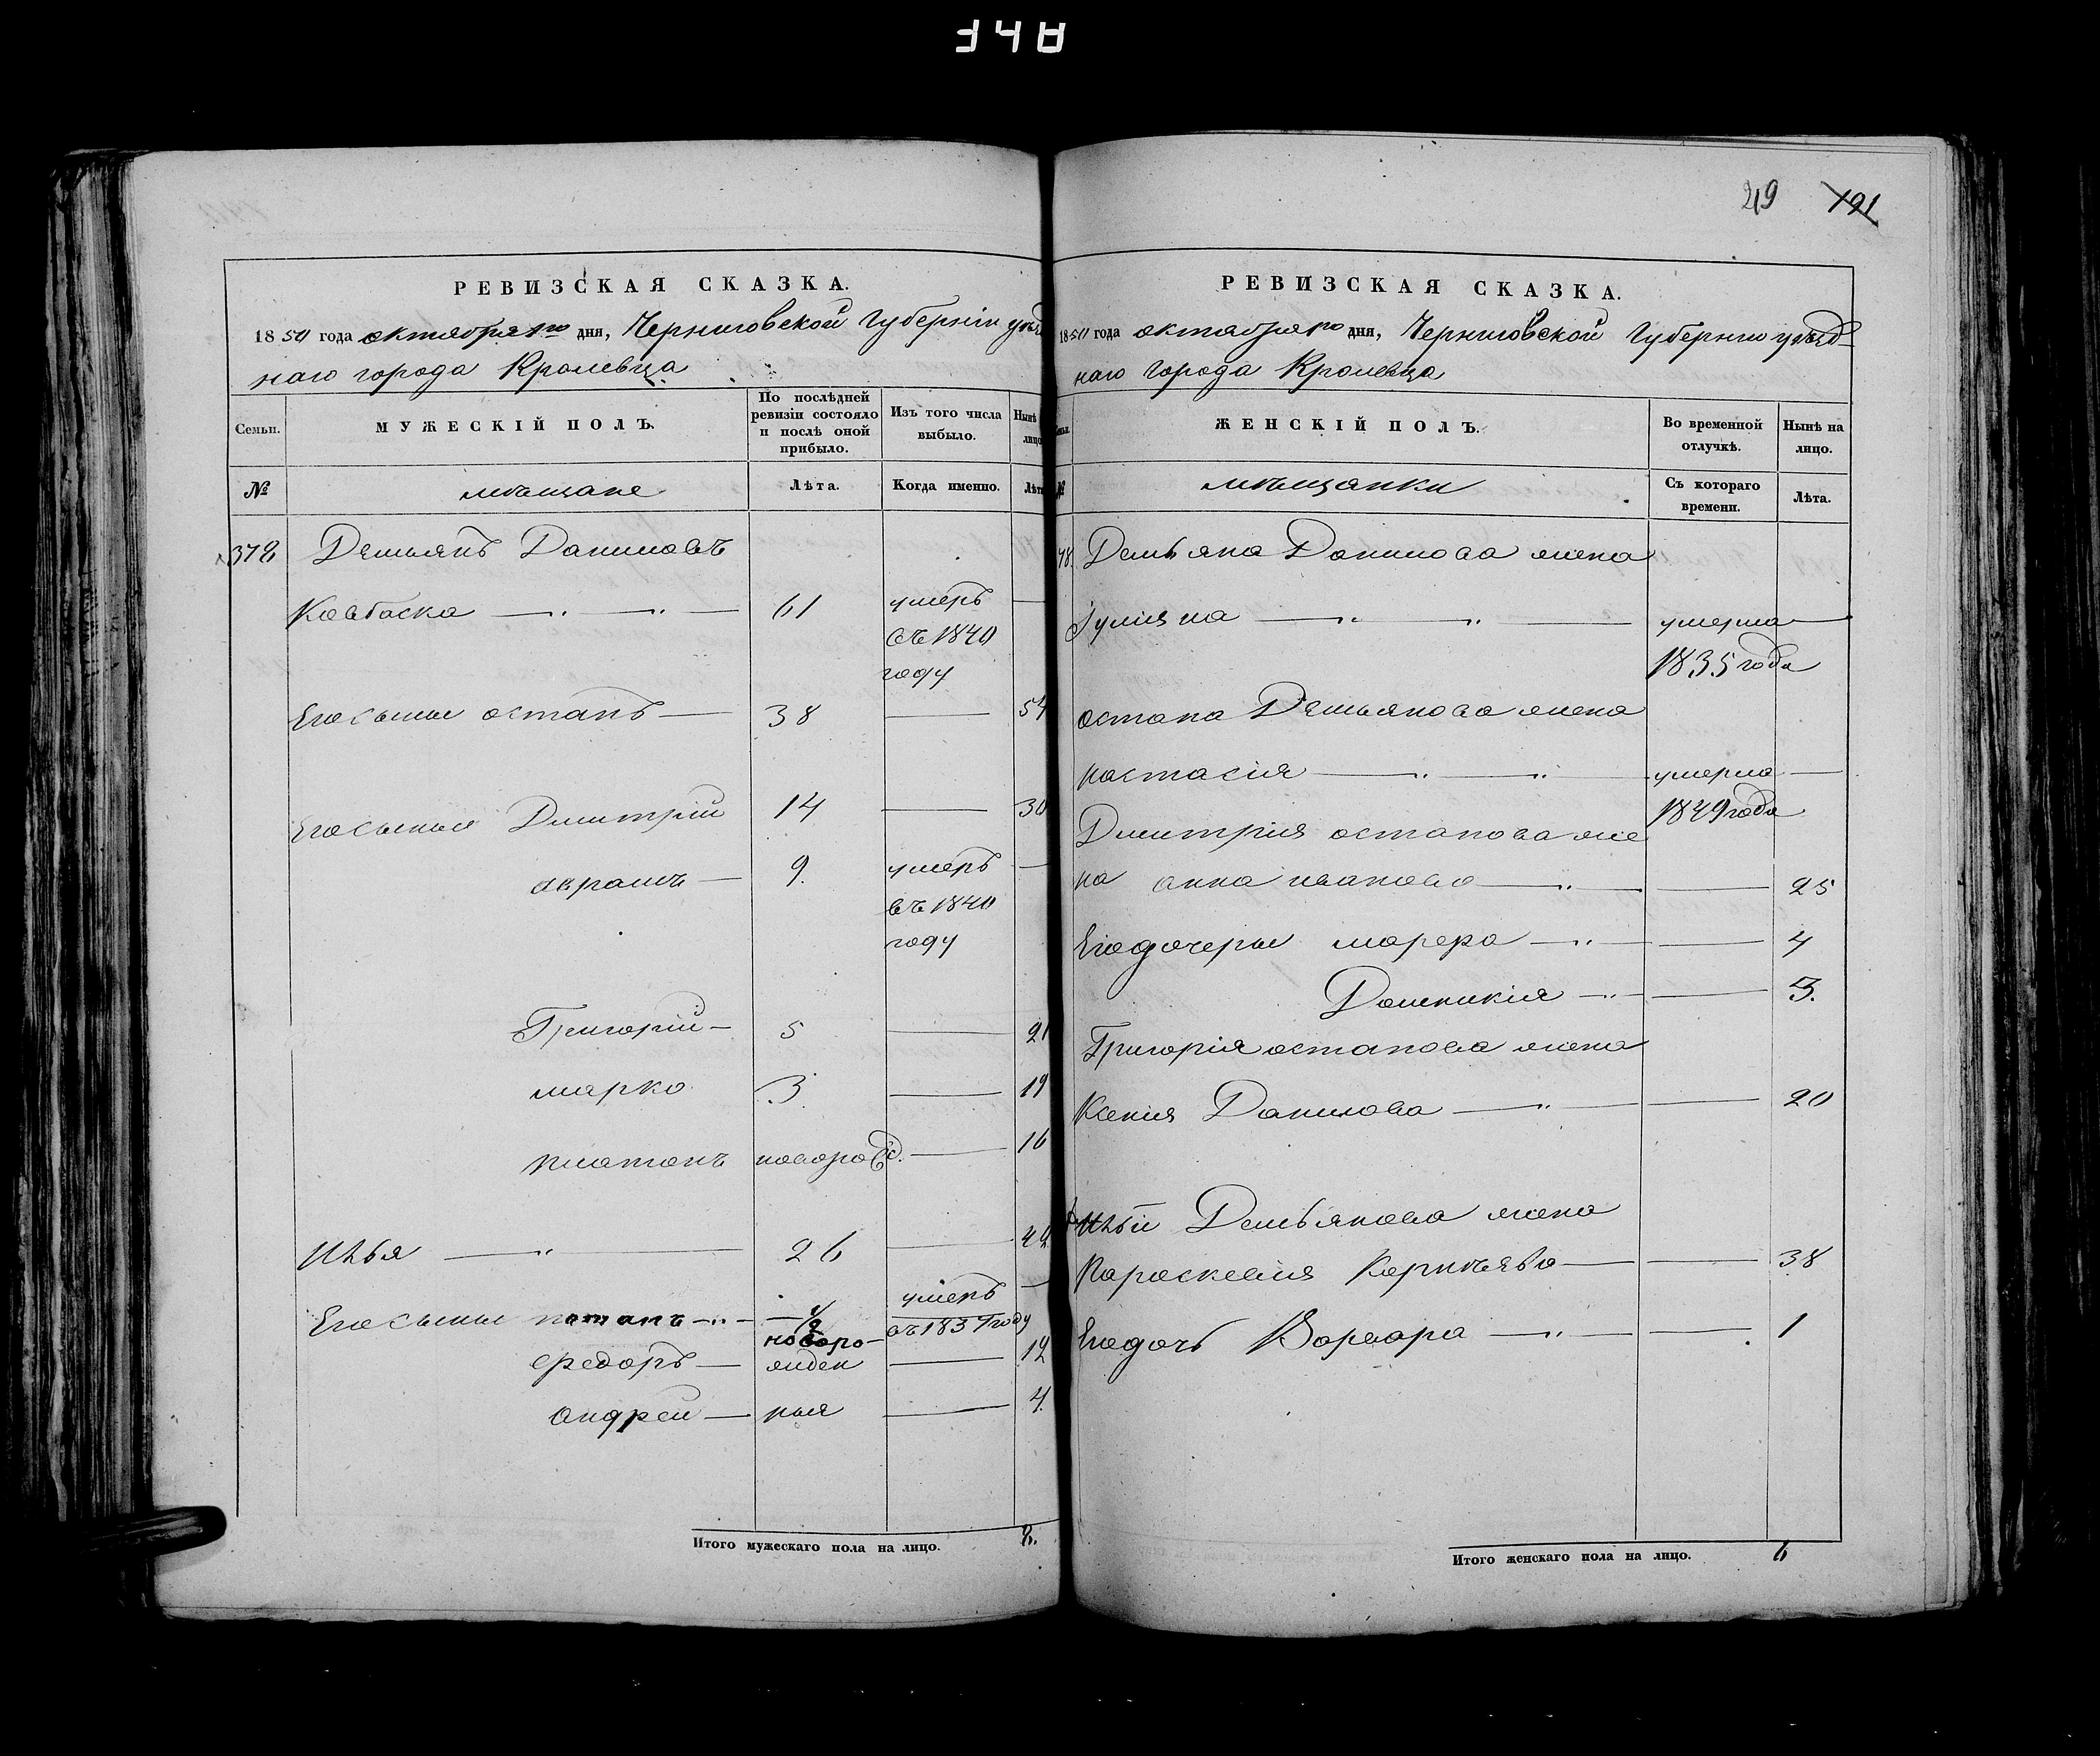 F4A
РЕВИЗСКАЯ СКАЗКА.
1850 года октября дня, Черниговской Губерніи уѣзд
наго города Кролевца
Семьи.
МУЖЕСКІЙ ПОЛЪ.
По послѣдней ревизіи состояло и послѣ оной прибыло.
Изъ того числа выбыло.
Нынѣ лицо
№
мѣщане
Лѣта.
Когда именно.
Лѣт
378 Демьянъ Даниловъ
Ковбаска 61 умеръ
въ 1840
году
Его сыны остапъ 38 54
Его сыны Дмитрій 14 30
аврамъ 9. умеръ
въ 1840
году
Григорій 5 21
марко 3. 19
платонъ новорожд. 16
Илья 26 42
Его сыны потапъ 1/2 умеръ
въ 1837 году
ѳедоръ новоро-
жден 12
андрей ныя 4.
Итого мужескаго пола на лицо. 8.
219 191
РЕВИЗСКАЯ СКАЗКА.
1850 года октября дня, Черниговской Губерніи уѣзд-
наго города Кролевца
ЖЕНСКІЙ ПОЛЪ.
Во временной отлучкѣ.
Нынѣ на лицо.
№
мѣщанки
Съ котораго времени.
Лѣта.
78. Демьяна Данилова жена
Іулияна умерла
1835 года
остапа Демьянова жена
настасія умерла
1849 года
Дмитрія остапова же
на анна иванова 25
Его дочеры марфа 4
Домникія 3.
Григорія остапова жена
Ксенія Данилова 20
Ильи Демьянова жена
Параскевия 38
Его дочь Варвара 1
Итого женскаго пола на лицо. 6